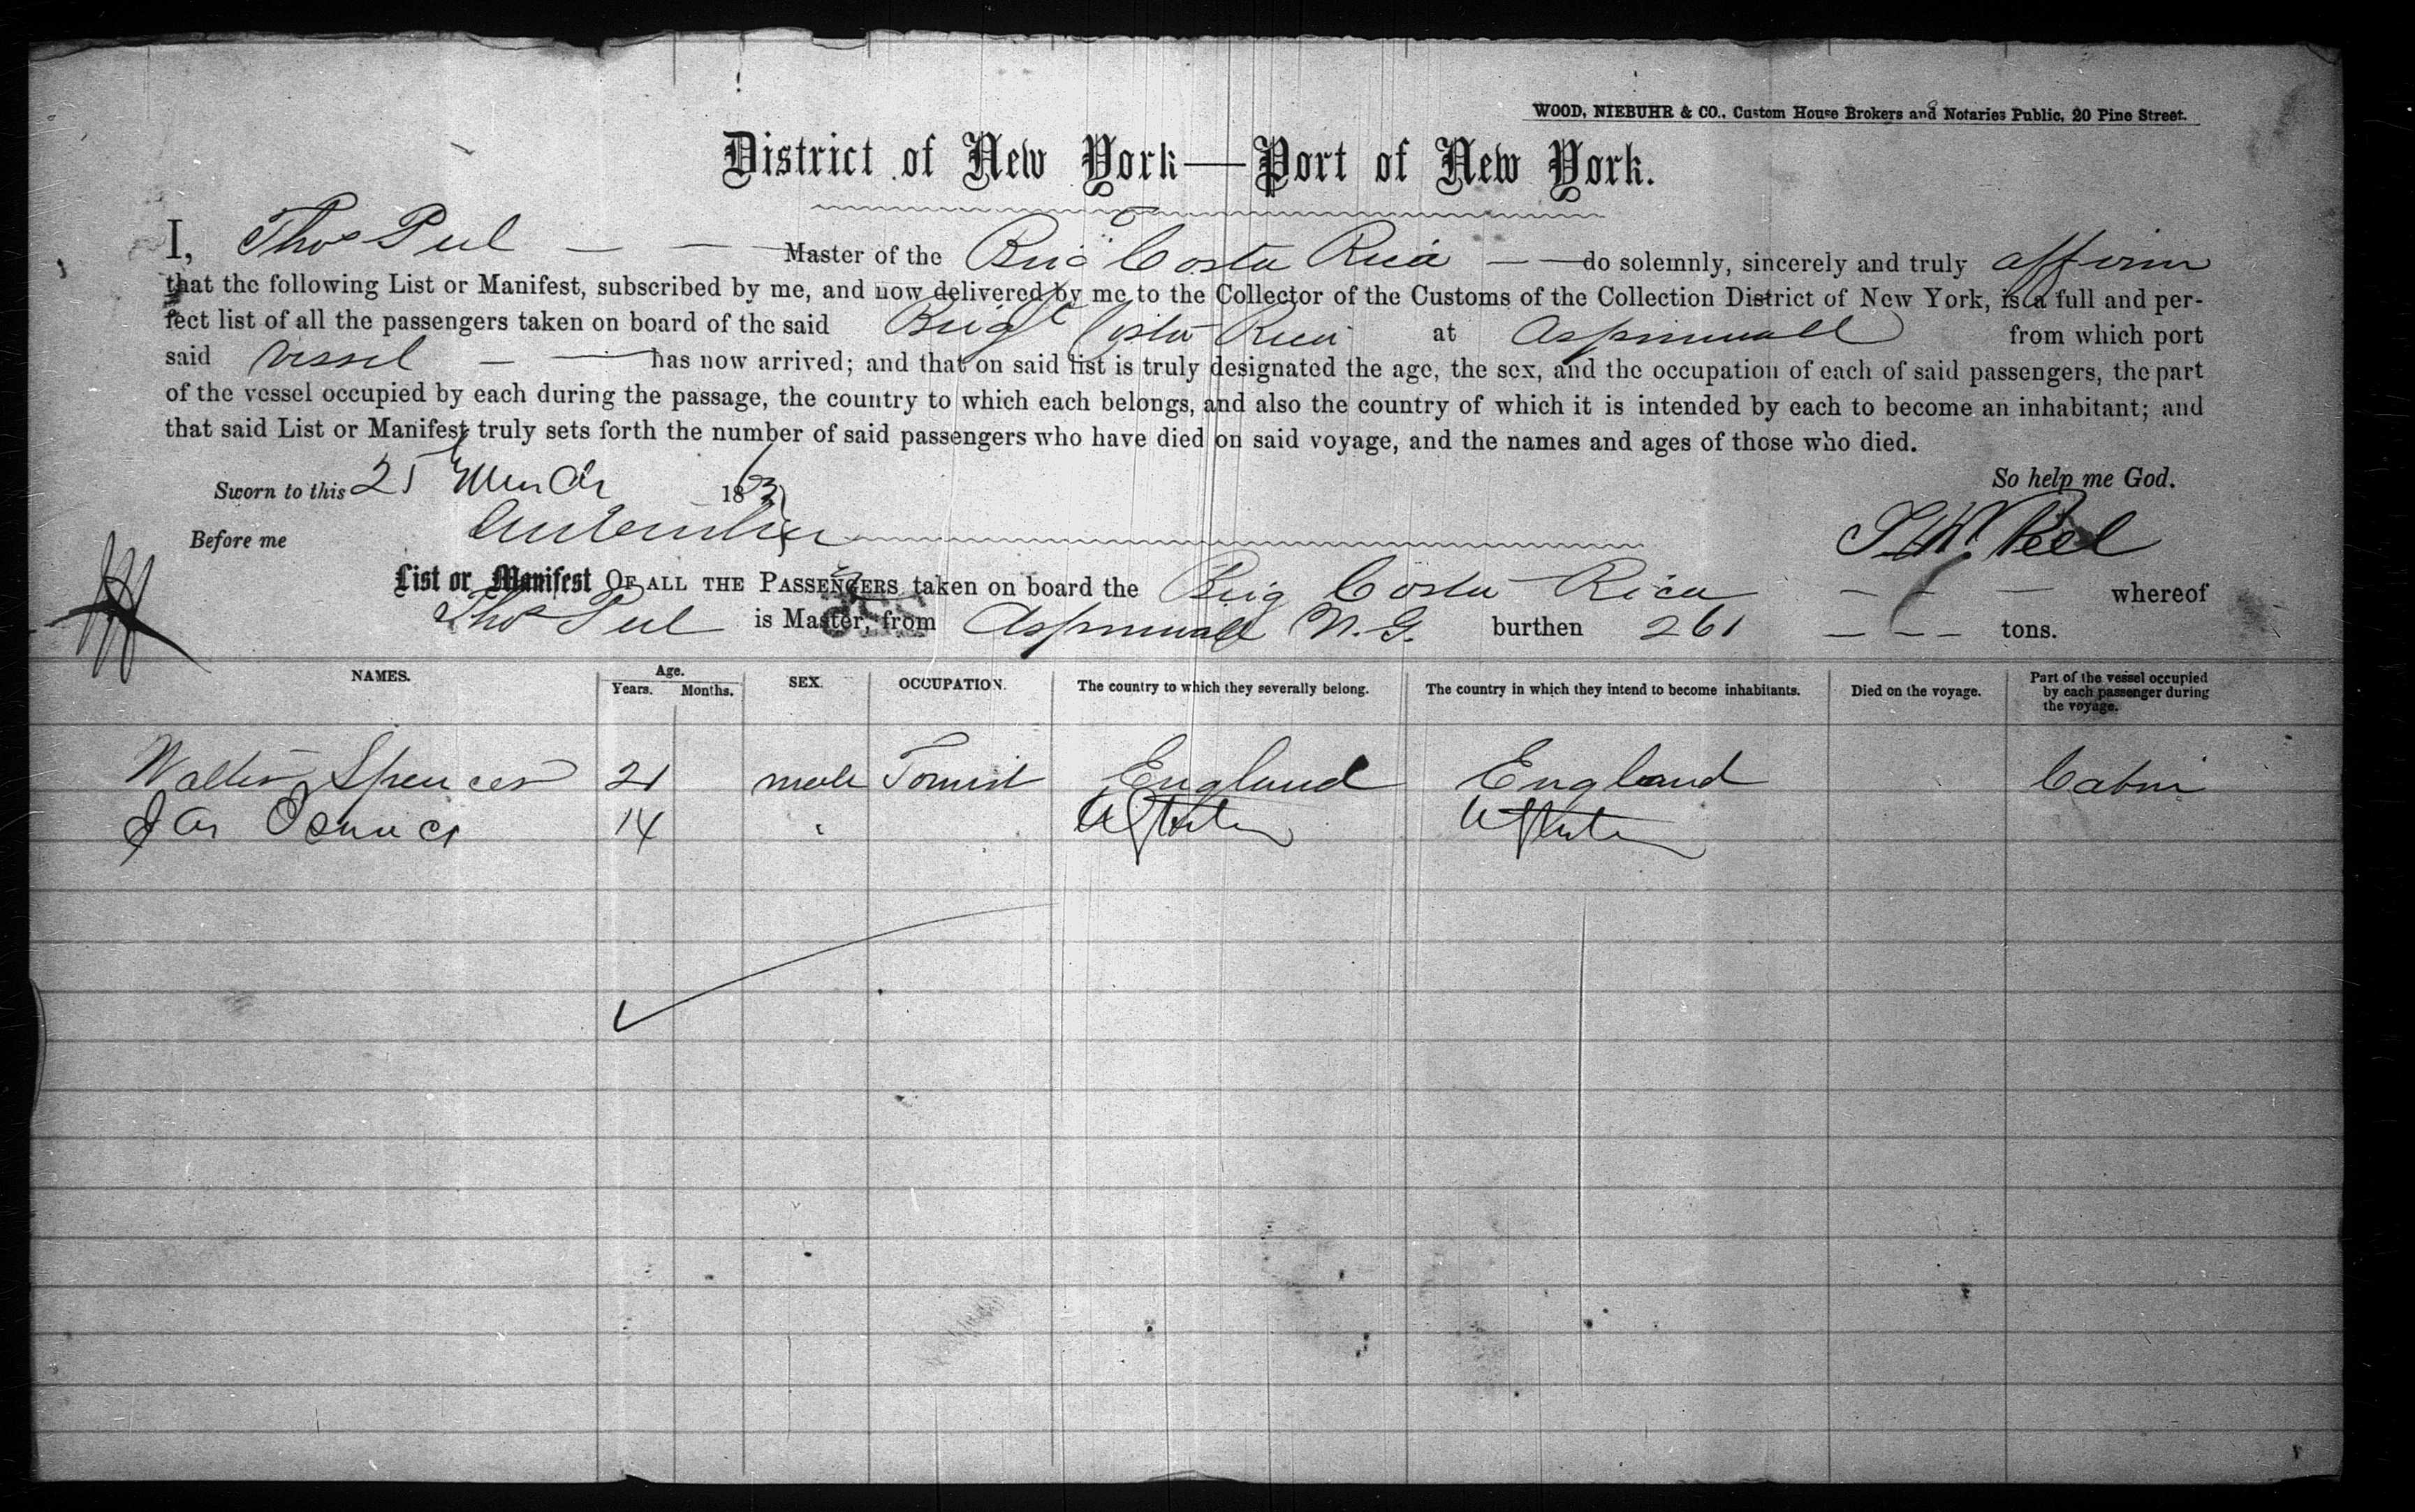 WOOD, NIEBUHR & CO., Custom House Brokers and Notaries Public, 20 Pine Street.
District of New York—Port of New York.
I, Thos Peel — — Master of the Brig Costa Rica — — do solemnly, sincerely and truly affirm
that the following List or Manifest, subscribed by me, and now delivered by me to the Collector of the Customs of the Collection District of New York, is a full and per-
fect list of all the passengers taken on board of the said Brig Costa Rica at Aspinwall from which port
said vessel — — has now arrived; and that on said list is truly designated the age, the sex, and the occupation of each of said passengers, the part
of the vessel occupied by each during the passage, the country to which each belongs, and also the country of which it is intended by each to become an inhabitant; and
that said List or Manifest truly sets forth the number of said passengers who have died on said voyage, and the names and ages of those who died.
Sworn to this 25 March 1863 So help me God.
Before me Peel
List or Manifest OF ALL THE PASSENGERS taken on board the Brig Costa Rica — — — whereof
Thos Peel is Master, from Aspinwall N.G. burthen 261 — — — tons.
NAMES. Age. Years. Months. SEX. OCCUPATION. The country to which they severally belong. The country in which they intend to become inhabitants. Died on the voyage. Part of the vessel occupied by each passenger during the voyage.
Walter Spencer 21 male Tourist England England Cabin
Jas 14 "